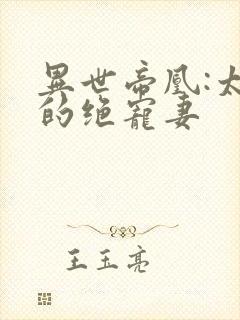 異世帝凰:太
的绝宠妻
王玉亮